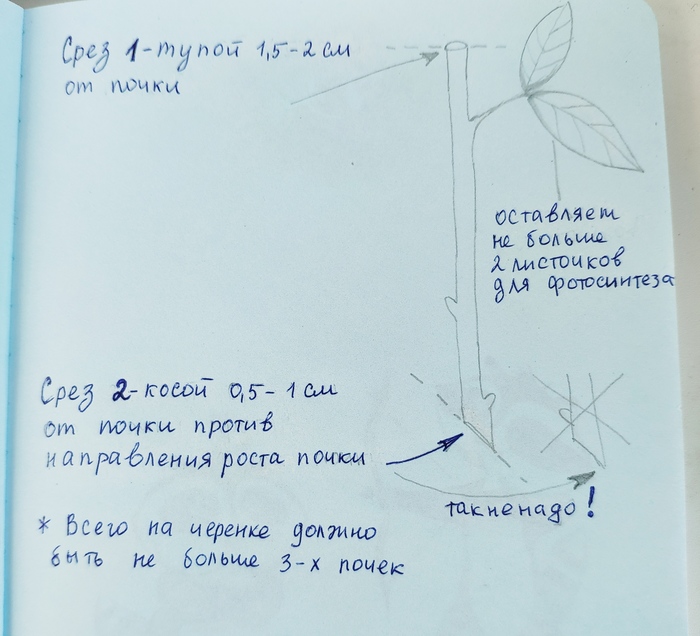 Срез 1-тупой 1,5-2 см
от почки
оставляет
не больше
2 листочков
для фотосинтеза
Срез 2-косой 0,5-1 см
от почки против
направления роста почки
так не надо!
* Всего на черенке должно
быть не больше 3-х почек